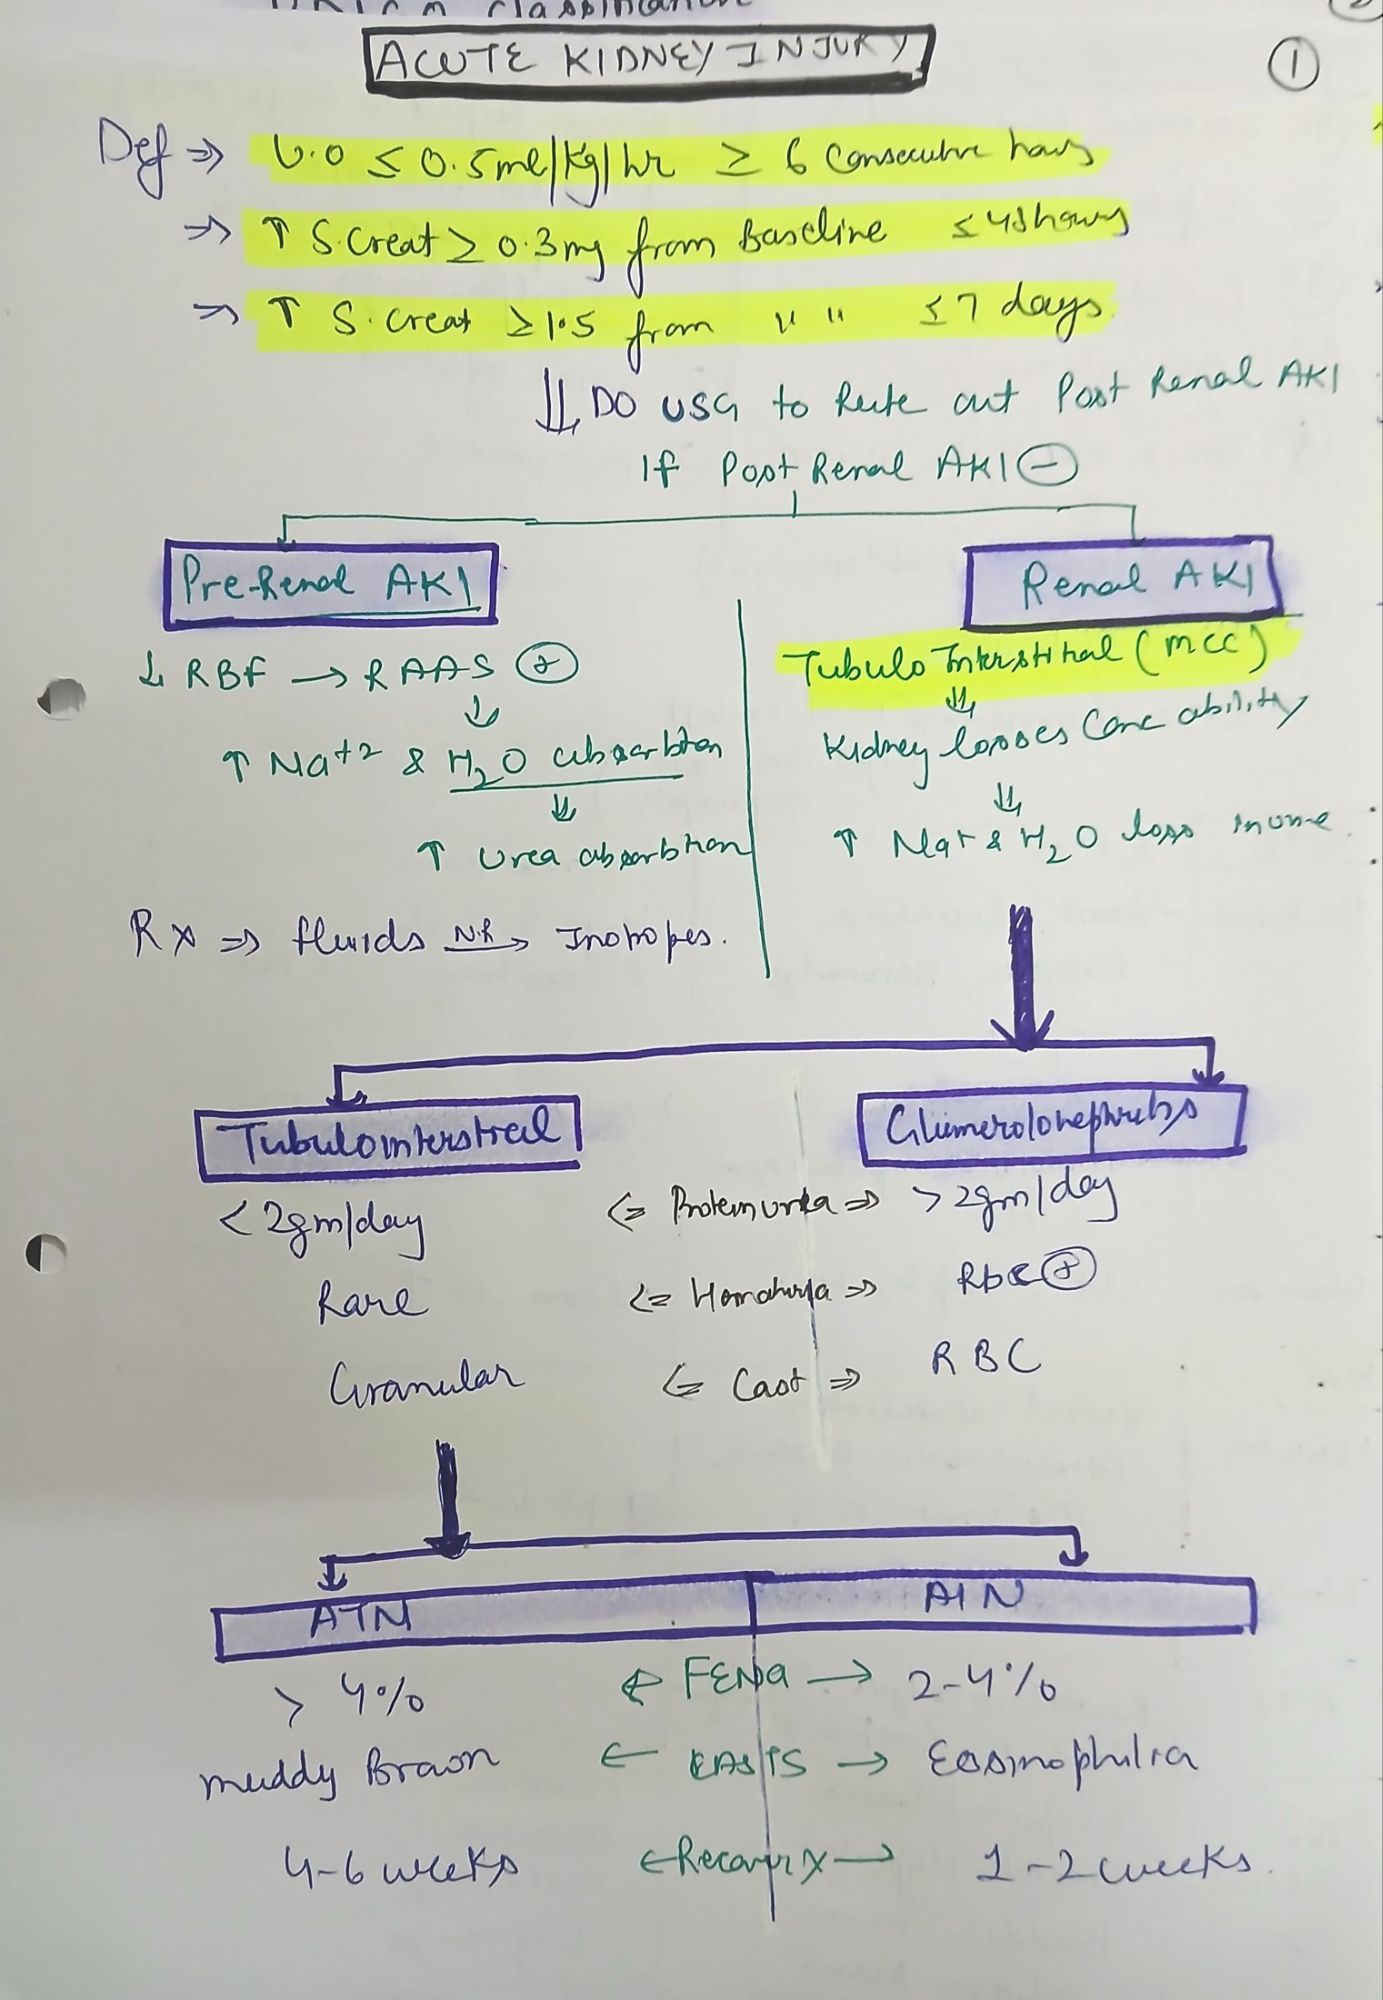 classification
ACUTE KIDNEY INJURY
1
Def ⇒ U.O ≤ 0.5ml/kg/hr ≥ 6 Consecutive hours
⇒ ↑ S.Creat ≥ 0.3mg from Baseline ≤ 48 hours
⇒ ↑ S.Creat ≥ 1.5 from " " ≤ 7 days.
⇓ DO USG to Rule out Post Renal AKI
If Post Renal AKI ⊖
Pre-Renal AKI
Renal AKI
↓ RBF → RAAS ⊕
↓
↑ Na+2 & H2O absorbtion
⇓
↑ Urea absorbtion
Rx ⇒ fluids N.R → Inotropes.
Tubulo Interstitial (MCC)
⇓
Kidney losses Conc ability
⇓
↑ Na+ & H2O loss in urine.
Tubulointerstitial
Glumerolonephritis
<2gm/day ⇐ Proteinurea ⇒ >2gm/day
Rare ⇐ Hematuria ⇒ Rbc ⊕
Granular ⇐ Cast ⇒ RBC
ATN
AIN
> 4% ← FENa → 2-4%
muddy Brown ← CASTS → Eosinophilia
4-6 weeks ← Recovery → 1-2 weeks.